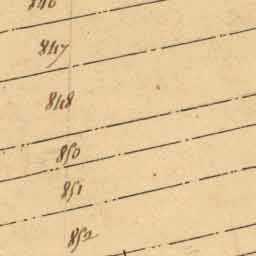 846
847
848
850
851
852